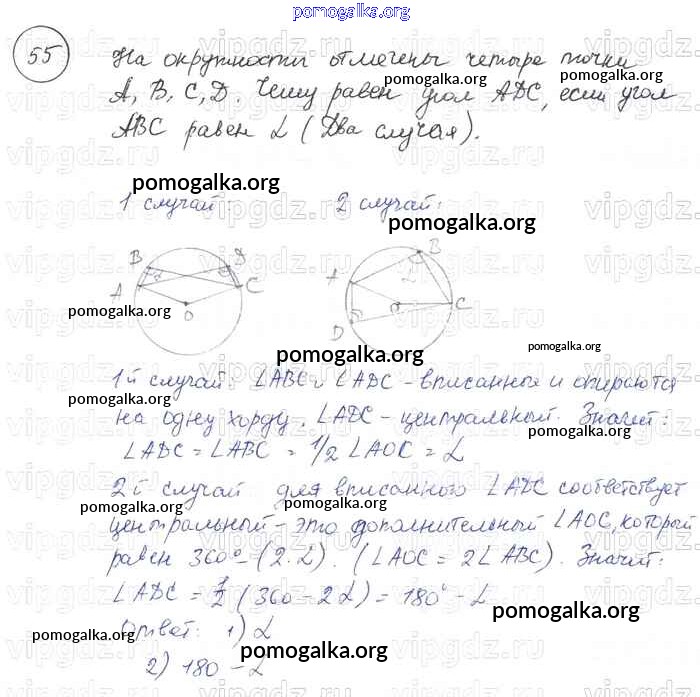 pomogalka.org
55
На окружности отмечены четыре точки
pomogalka.org pomogalka.org
A, B, C, D. Чему равен угол ADC, если угол
ABC равен α (Два случая).
pomogalka.org
1 случай: 2 случай:
pomogalka.org
B D B
A C A C
O O
D
pomogalka.org
pomogalka.org
pomogalka.org
1й случай: ∠ABC и ∠ADC - вписанные и опираются
pomogalka.org
на одну хорду. ∠ADC - центральный. Значит:
pomogalka.org
∠ADC = ∠ABC = 1/2 ∠AOC = α
2й случай для вписанного ∠ADC соответствует
pomogalka.org
центральный - это дополнительный ∠AOC, который
pomogalka.org
равен 360° - (2·α). (∠AOC = 2∠ABC). Значит:
∠ADC = 1/2 (360 - 2α) = 180° - α
pomogalka.org
Ответ: 1) α
pomogalka.org
2) 180 - α
pomogalka.org
pomogalka.org
vipgdz.ru